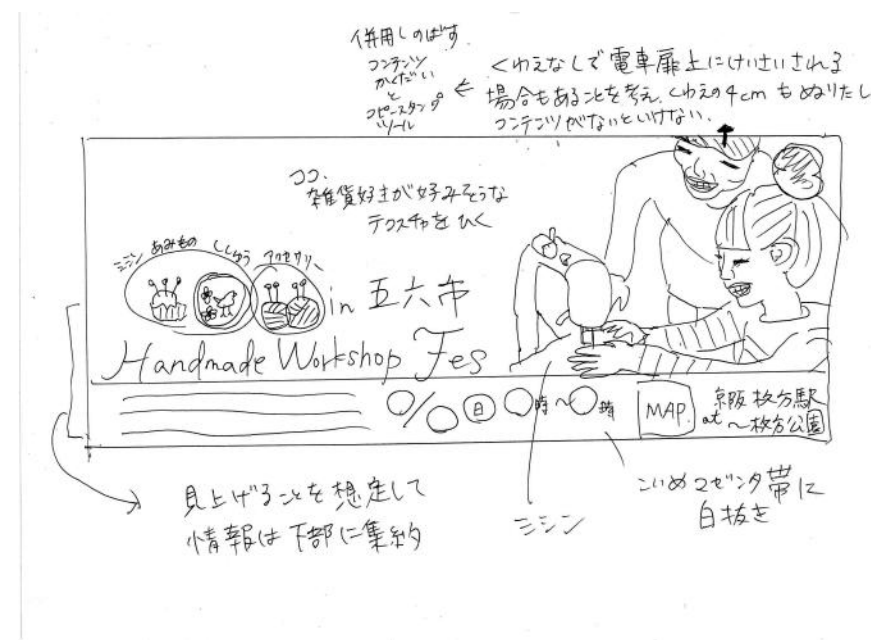 併用しのばす
コンテンツ
かくだい
と
コピースタンプ
ツール
←
くわえなしで電車扉上にけいさいされる
場合もあることを考え、くわえの4cmもぬりたし
コンテンツがないといけない。
ココ、
雑貨好きが好みそうな
テクスチャをひく
ミシン あみもの ししゅう アクセサリー
in 五六市
Handmade Workshop Fes
〇/〇 日 〇時〜〇時
MAP
京阪 枚方駅
at 〜枚方公園
見上げることを想定して
情報は下部に集約
ミシン
こいめマゼンタ帯に
白抜き